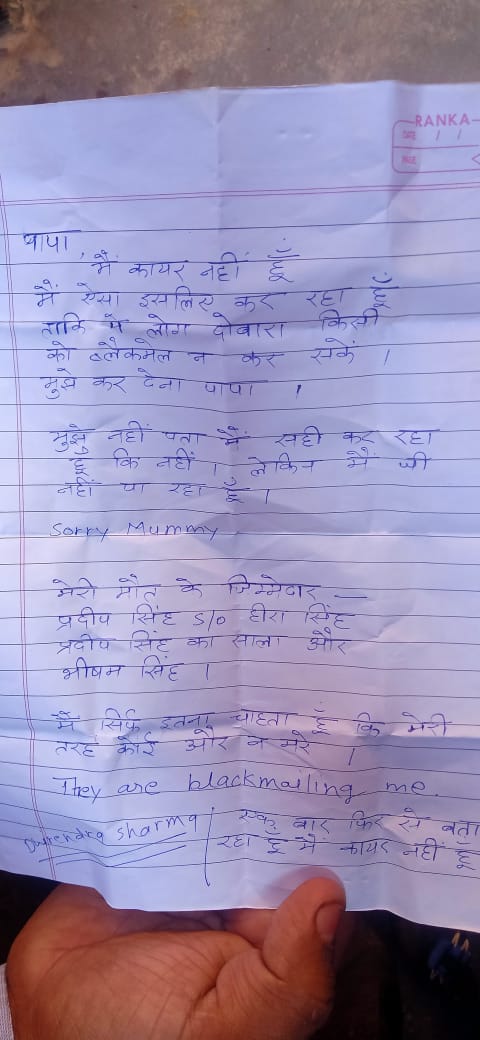 RANKA
DATE / /
PAGE
पापा,
मैं कायर नहीं हूँ
मैं ऐसा इसलिए कर रहा हूँ
ताकि ये लोग दोबारा किसी
को ब्लैकमेल न कर सकें ।
मुझे कर देना पापा ।
मुझे नहीं पता मैं सही कर रहा
हूं कि नहीं । लेकिन मैं जी
नहीं पा रहा हूँ ।
Sorry Mummy
मेरी मौत के जिम्मेदार —
प्रदीप सिंह S/o हीरा सिंह
प्रदीप सिंह का साला और
भीषम सिंह ।
मैं सिर्फ इतना चाहता हूँ कि मेरी
तरह कोई और न मरे ।
They are blackmailing me.
sharma
एक बार फिर से बता
रहा हूँ मैं कायर नहीं हूँ